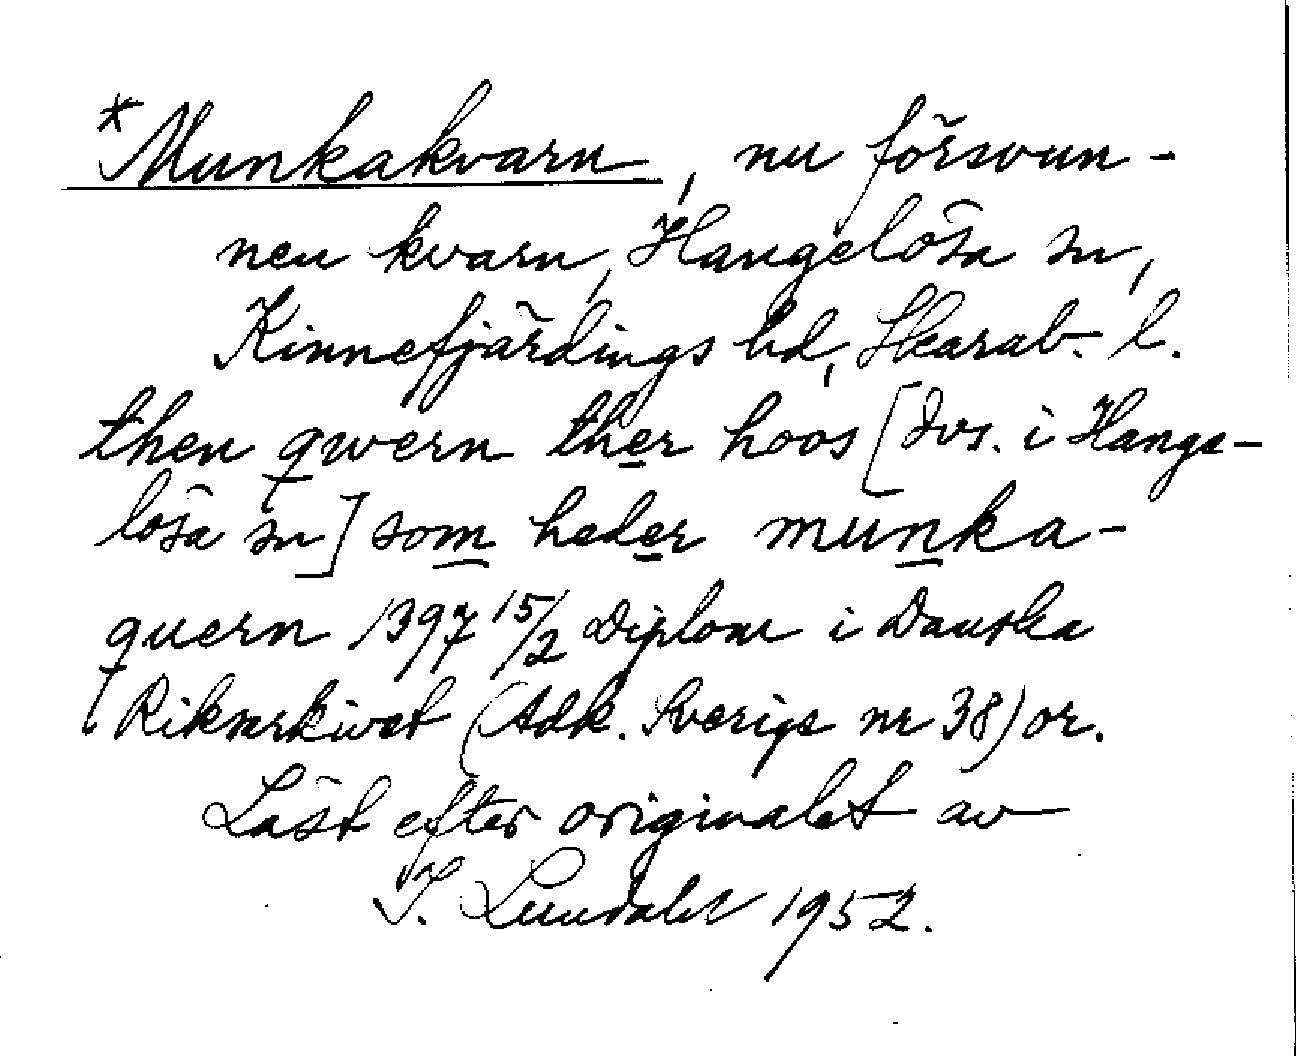 *Munkakvarn, nu försvun-
nen kvarn, Hangelösa sn,
Kinnefjärdings hd, Skarab. l.
then qwern ther hoos [dvs. i Hange-
lösa sn] som heder munka-
quern 1397 15/2 Diplom i Danska
Riksarkivet (Adk. Sverige nr 38) or.
Läst efter originalet av
I. Lundahl 1952.